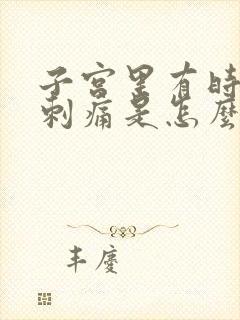 子宫里有时
刺痛是怎麽
丰慶